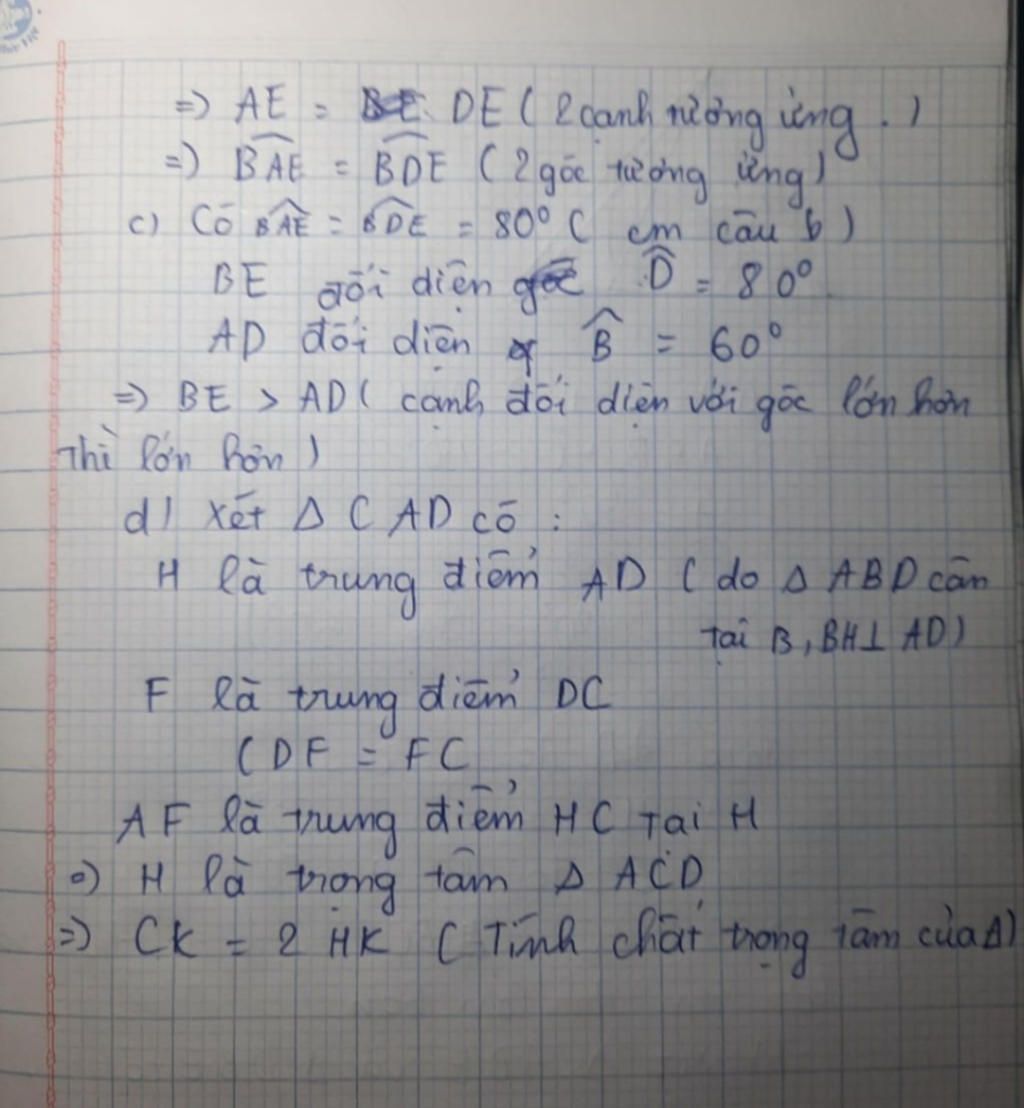 => AE = DE ( 2 cạnh tương ứng . )
=) BAE = BDE ( 2 góc tương ứng )
c) Có BAE = BDE = 80° ( cm câu b )
BE đối diện góc D = 80°
AD đối diện B = 60°
=> BE > AD ( cạnh đối diện với góc lớn hơn
thì lớn hơn )
d) Xét Δ CAD có :
H là trung điểm AD ( do Δ ABD cân
tại B, BH⊥ AD )
F là trung điểm DC
( DF = FC
AF là trung điểm HC tại H
=) H là trọng tâm Δ ACD
=> CK = 2 HK ( Tính chất trọng tâm của Δ )